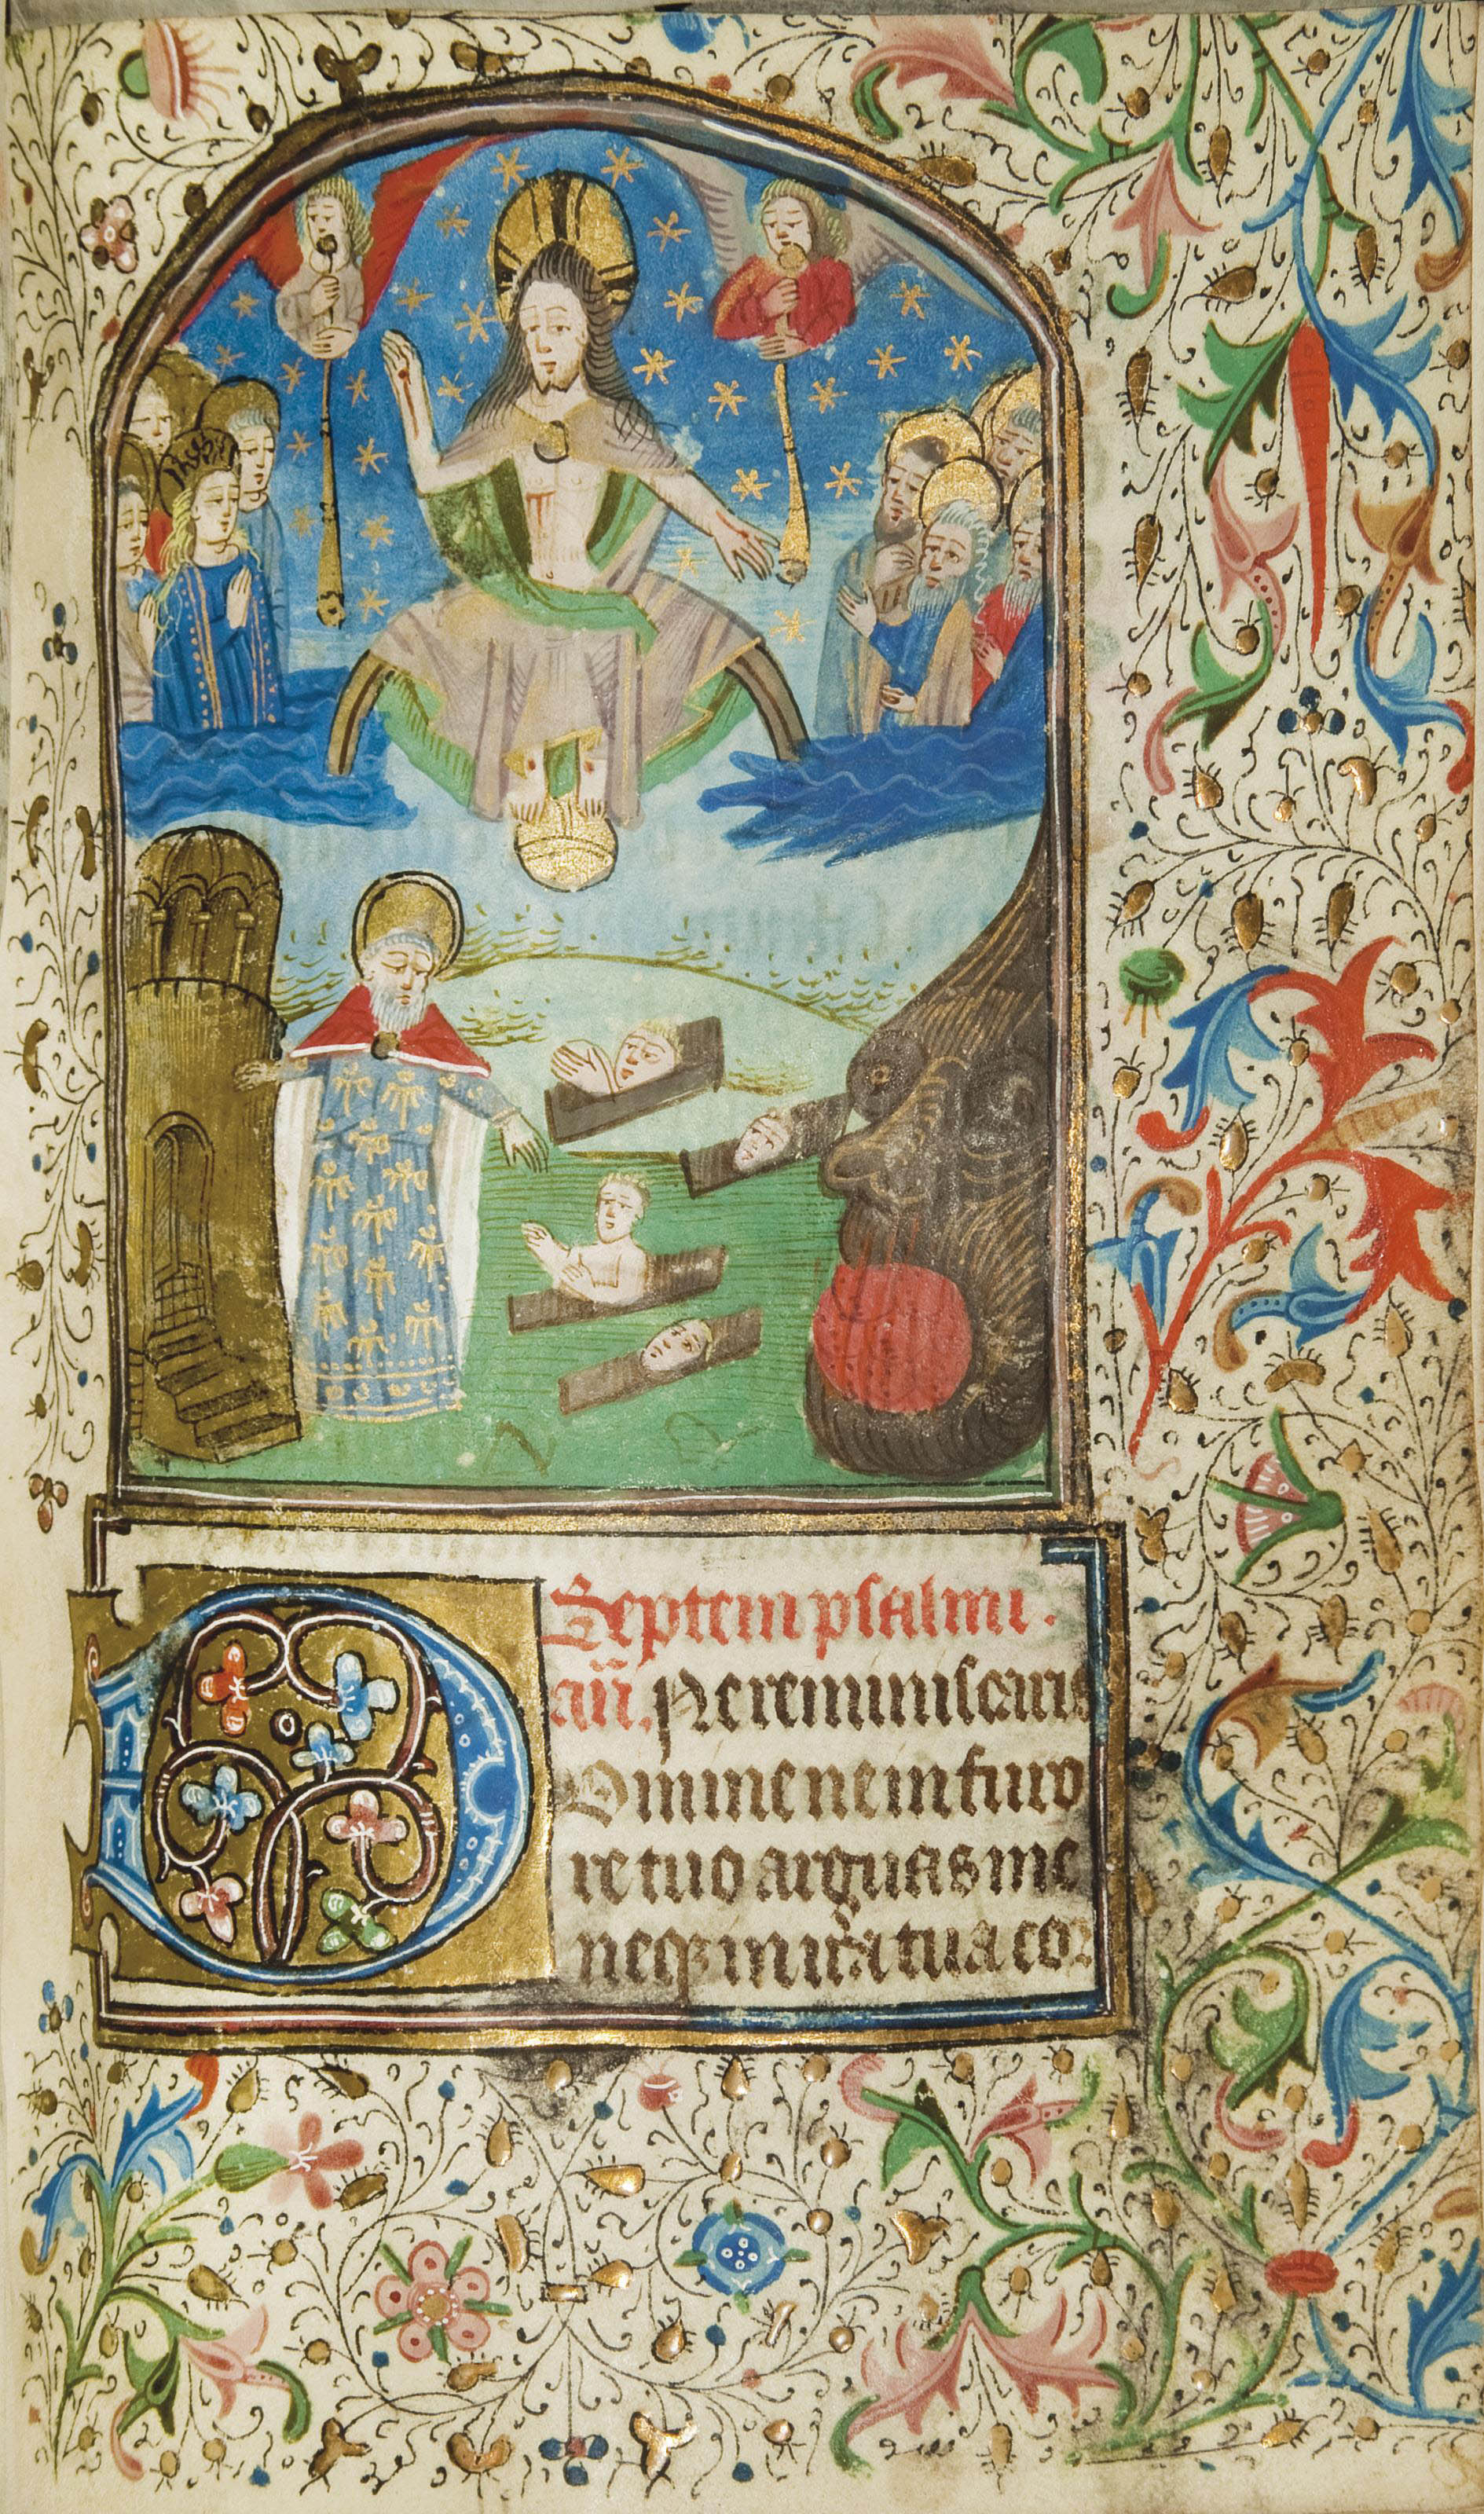 Septem psalmi.
an̄. Ne reminiscaris
DOmine ne in furo
re tuo arguas me
neqꝫ in ira tua cor